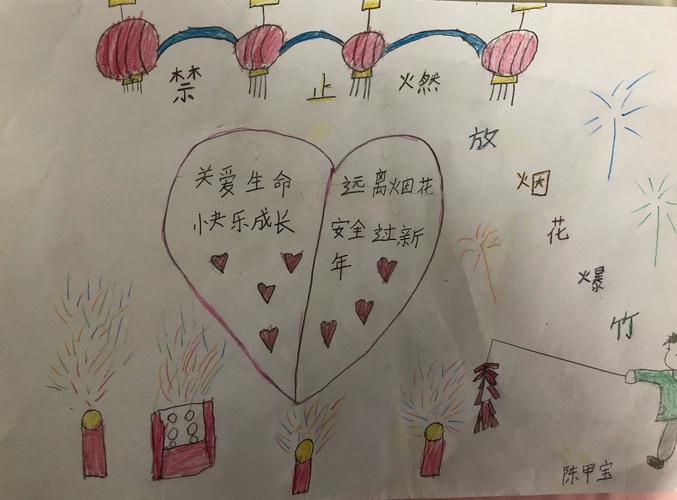 禁止燃放烟花爆竹
关爱生命
快乐成长
远离烟花
安全过新
年
陈甲宝